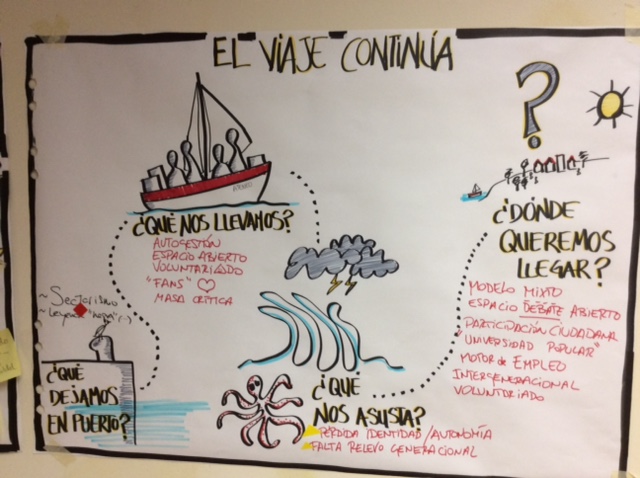 EL VIAJE CONTINÚA
?
¿QUÉ NOS LLEVAMOS?
AUTOGESTIÓN
ESPACIO ABIERTO
VOLUNTARIADO
"FANS"
MASA CRÍTICA
~ Sectorismo
~ Leyenda "negra" (-)
¿QUÉ
DEJAMOS
EN PUERTO?
¿QUÉ
NOS ASUSTA?
PÉRDIDA IDENTIDAD/AUTONOMÍA
FALTA RELEVO GENERACIONAL
¿DÓNDE
QUEREMOS
LLEGAR?
MODELO MIXTO
ESPACIO DEBATE ABIERTO
PARTICIPACIÓN CIUDADANA
"UNIVERSIDAD POPULAR"
MOTOR DE EMPLEO
INTERGENERACIONAL
VOLUNTARIADO